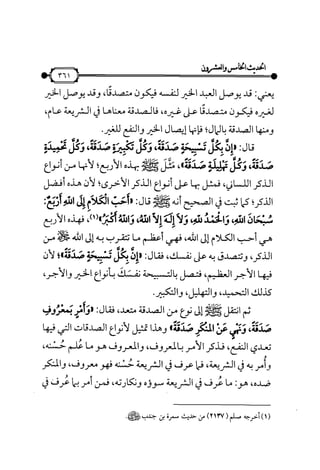 الحديث الخامس والعشرون
٣٦١
يعني: قد يوصل العبد الخير لنفسه فيكون متصدقًا، وقد يوصل الخير
لغيره فيكون متصدقًا على غيره، فالصدقة معناها في الشريعة عام،
ومنها الصدقة بالمال؛ فإنها إيصال الخير والنفع للغير.
قال: «إِنَّ بِكُلِّ تَسْبِيحَةٍ صَدَقَةً، وَكُلِّ تَكْبِيرَةٍ صَدَقَةً، وَكُلِّ تَحْمِيدَةٍ
صَدَقَةً، وَكُلِّ تَهْلِيلَةٍ صَدَقَةً»، مَثَّلَ ﷺ بهذه الأربع؛ لأنها من أنواع
الذكر اللساني، فمثل بها على أنواع الذكر الأخرى؛ لأن هذه أفضل
الذكر؛ كما ثبت في الصحيح أنه ﷺ قال: «أَحَبُّ الْكَلَامِ إِلَى اللَّهِ أَرْبَعٌ:
سُبْحَانَ اللهِ، وَالحَمْدُ للهِ، وَلاَ إِلَهَ إِلاَّ اللهُ، وَاللهُ أَكْبَرُ»(١)، فهذه الأربع
هي أحب الكلام إلى الله، فهي أعظم ما تتقرب به إلى الله ﷻ من
الذكر، وتتصدق به على نفسك، فقال: «إِنَّ بِكُلِّ تَسْبِيحَةٍ صَدَقَةً»؛ لأن
فيها الأجر العظيم، فتصل بالتسبيحة نفسَكَ بأنواع الخير والأجر،
كذلك التحميد، والتهليل، والتكبير.
ثم انتقل ﷺ إلى نوع من الصدقة متعد، فقال: «وَأَمْرٍ بِمَعْرُوفٍ
صَدَقَةً، وَنَهْيٍ عَنْ المُنْكَرِ صَدَقَةً» وهذا تمثيل لأنواع الصدقات التي فيها
تعدي النفع، فذكر الأمر بالمعروف، والمعروف هو ما عُلم حُسْنه،
وأُمر به في الشريعة، فما عرف في الشريعة حُسْنه فهو معروف، والمنكر
ضده، هو: ما عُرف في الشريعة سوؤه ونكارته، فمن أمر بما عُرف في
(١) أخرجه مسلم (٢١٣٧) من حديث سمرة بن جندب ﵁.